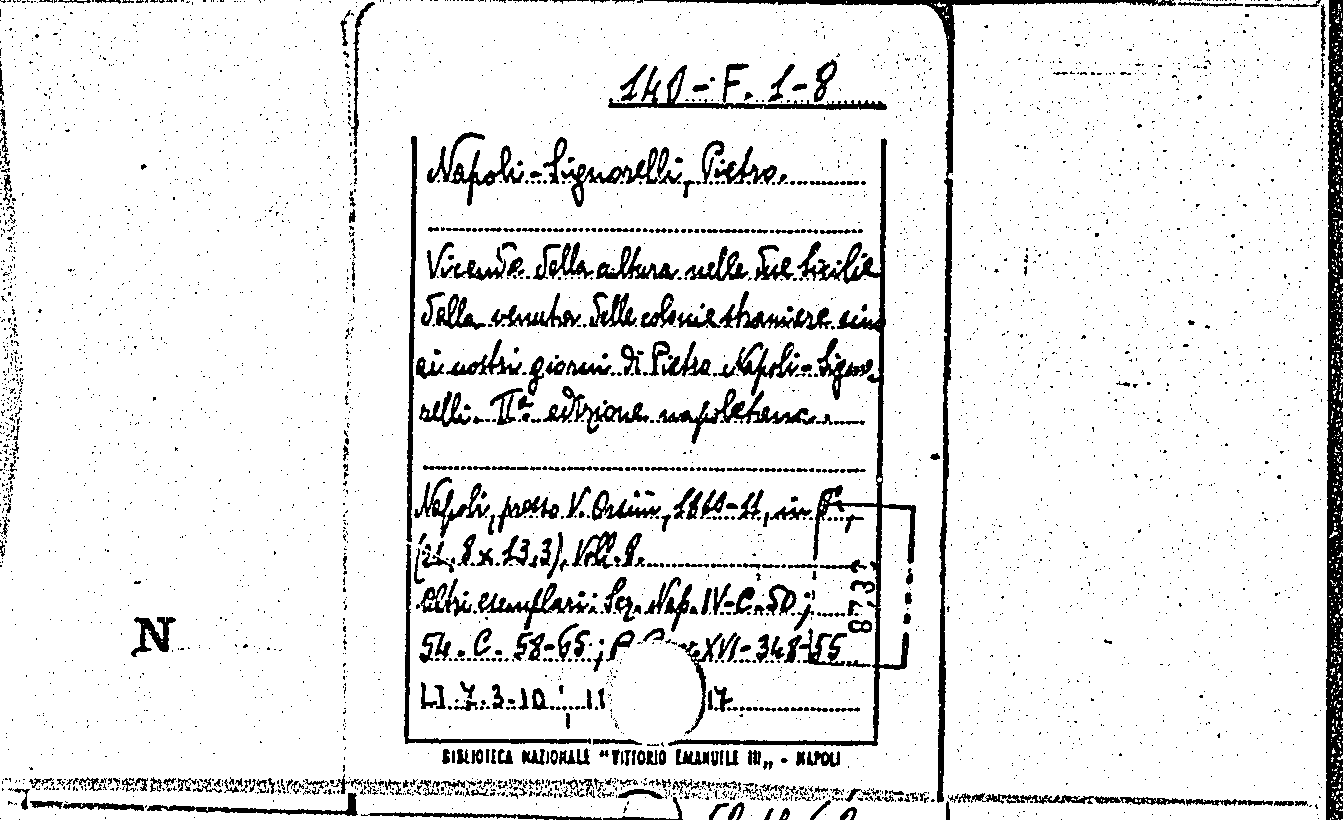 140-F. 1-8
Napoli-Signorelli, Pietro.
Vicende della coltura nelle due Sicilie
dalla venuta delle colonie straniere sino
ai nostri giorni di Pietro Napoli-Signo-
relli. IIª edizione napoletana.
Napoli, presso V. Orsini, 1810-11, in 8º,
(21,8 x 13,3), Voll. 8.
Altri esemplari: Sez. Nap. IV-C. 50;
54. C. 58-65; XVI-348-55
LI.7.3-10 17
8737
BIBLIOTECA NAZIONALE "VITTORIO EMANUELE III„ - NAPOLI
N